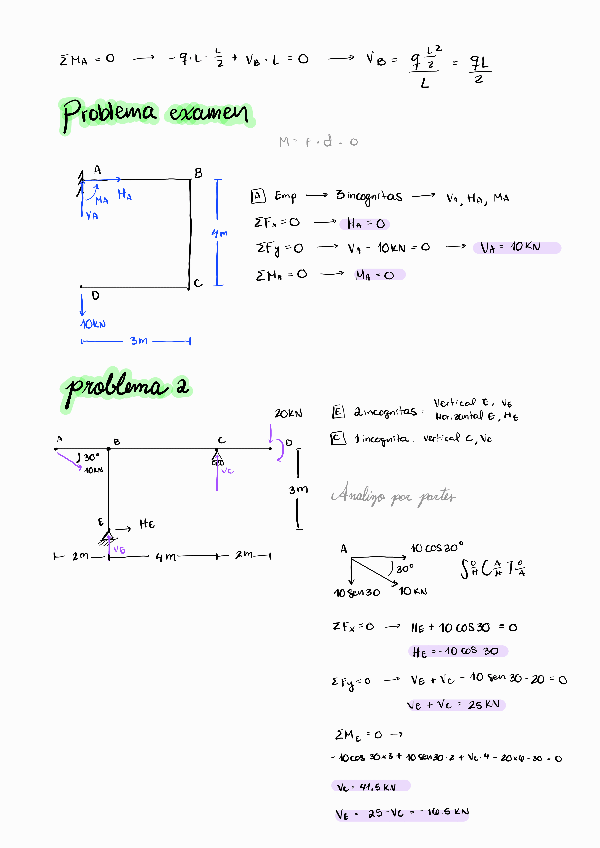 ΣMA = 0 → -q·L·L/2 + VB·L = 0 → VB = (q L²/2)/L = qL/2
Problema examen
M = F · d = 0
A
HA
MA
VA
B
4m
C
D
10KN
3m
A Emp → 3 incognitas → VA, HA, MA
ΣFx = 0 → HA = 0
ΣFy = 0 → VA - 10KN = 0 → VA = 10KN
ΣMA = 0 → MA = 0
problema 2
20KN
A
B
C
D
30°
10KN
VC
3m
E
HE
VE
2m
4m
2m
E 2 incognitas. Vertical E, VE
Horizontal E, HE
C 1 incognita. vertical C, VC
Analizo por partes
A
10 cos 30°
30°
10 sen 30
10 KN
S O/H C A/H T O/A
ΣFx = 0 → HE + 10 COS 30 = 0
HE = -10 cos 30
ΣFy = 0 → VE + VC - 10 sen 30 - 20 = 0
VE + VC = 25 KN
ΣME = 0 →
-10cos 30×3 + 10sen30·2 + VC·4 - 20×6 - 30 = 0
VC = 41.5 KN
VE = 25 - VC = -16.5 KN